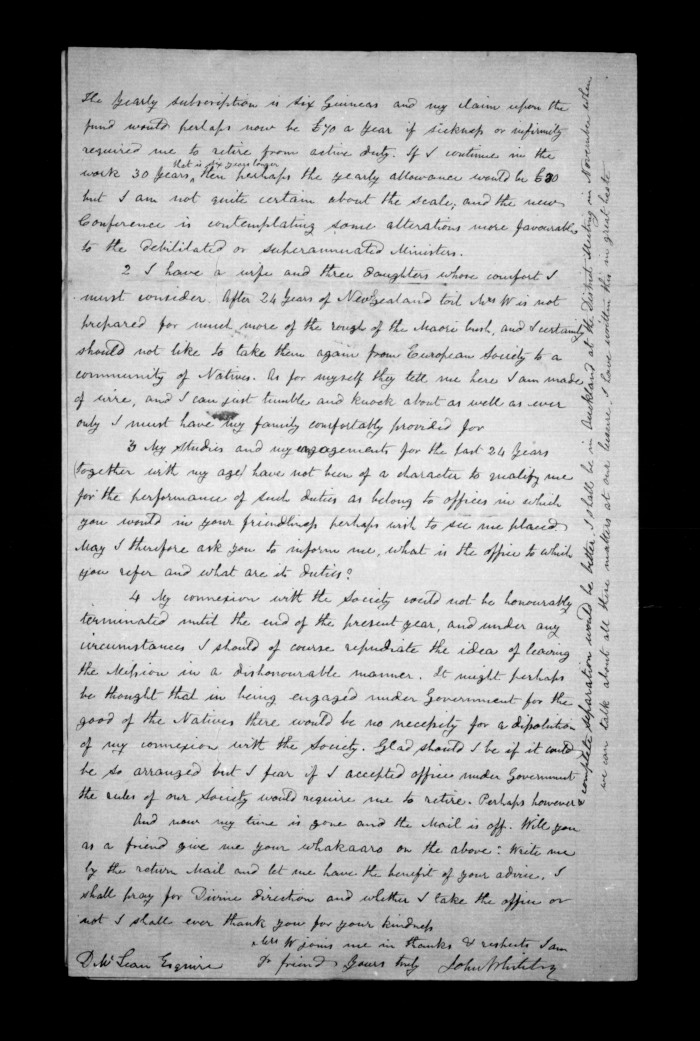 The Yearly subscription is six Guineas and my claim upon the
fund would perhaps now be £70 a Year if sickness or infirmity
required me to retire from active duty. If I continue in the
that is six years longer
work 30 Years, then perhaps the yearly allowance would be £80
but I am not quite certain about the scale, and the new
Conference is contemplating some alterations more favourable
to the debilitated or superannuated Ministers.
2 I have a wife and three daughters whose comfort I
must consider. After 24 Years of New Zealand toil Mrs W is not
prepared for much more of the rough of the Maori bush, and I certainly
should not like to take them again from European Society to a
community of Natives. As for myself they tell me here I am made
of wire, and I can just tumble and knock about as well as ever
only I must have my family comfortably provided for
3 My Studies and my engagements for the last 24 Years
(together with my age) have not been of a character to qualify me
for the performance of such duties as belong to offices in which
you would in your friendliness perhaps wish to see me placed
May I therefore ask you to inform me, what is the office to which
you refer and what are its duties?
4 My connexion with the Society could not be honourably
terminated until the end of the present year, and under any
circumstances I should of course repudiate the idea of leaving
the Mission in a dishonourable manner. It might perhaps
be thought that in being engaged under Government for the
good of the Natives there would be no necessity for a dissolution
of my connexion with the Society. Glad should I be if it could
be so arranged but I fear if I accepted office under Government
the rules of our Society would require me to retire. Perhaps however a
complete separation would be better. I shall be in Auckland at the District Meeting in November when
we can talk about all these matters at our leisure. I have written this in great haste
And now my time is gone and the Mail is off. Will you
as a friend give me your whakaaro on the above? Write me
by the return Mail and let me have the benefit of your advice. I
shall pray for Divine direction and whether I take the office or
not I shall ever thank you for your kindness
Mrs W joins me in thanks & respects I am
D McLean Esquire
Yr friend Yours truly John Whiteley